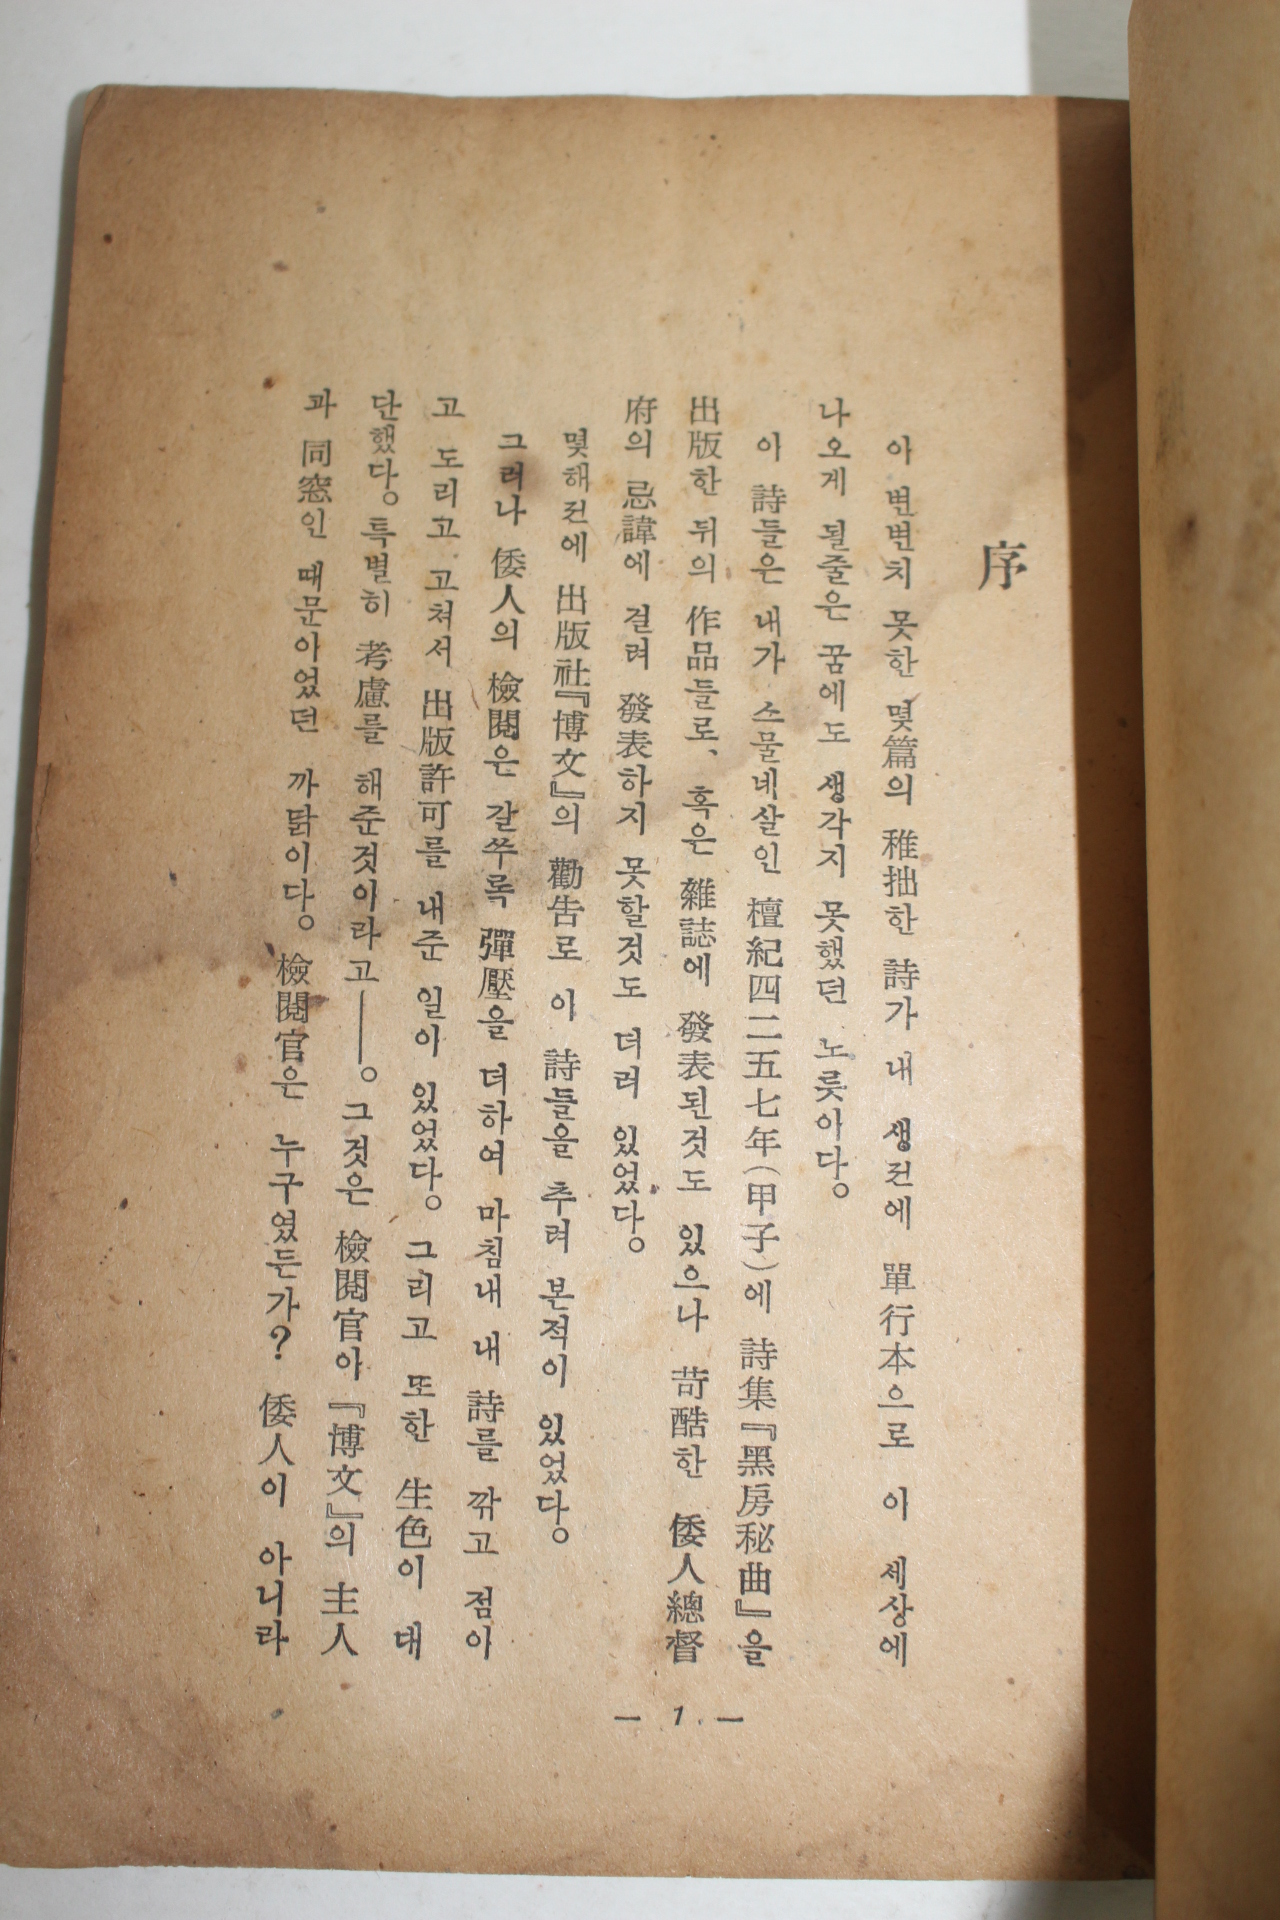 序
아 변변치 못한 몇篇의 稚拙한 詩가 내 생전에 單行本으로 이 세상에
나오게 될줄은 꿈에도 생각지 못했던 노릇아다。
아 詩들은 내가 스물네살인 檀紀四二五七年(甲子)에 詩集『黑房秘曲』을
出版한 뒤의 作品들로、혹은 雜誌에 發表된것도 있으나 苛酷한 倭人總督
府의 忌諱에 걸려 發表하지 못할것도 더러 있었다。
몇해전에 出版社『博文』의 勸告로 아 詩들을 추려 본적이 있었다。
그러나 倭人의 檢閱은 갈쑤록 彈壓을 더하여 마침내 내 詩를 깎고 점아
고 도리고 고쳐서 出版許可를 내준 일아 있었다。그리고 또한 生色이 대
단했다。특별히 考慮를 해준것이라고――。그것은 檢閱官아『博文』의 主人
과 同窓인 때문아었던 까닭이다。檢閱官은 누구였든가? 倭人이 아니라
— 1 —